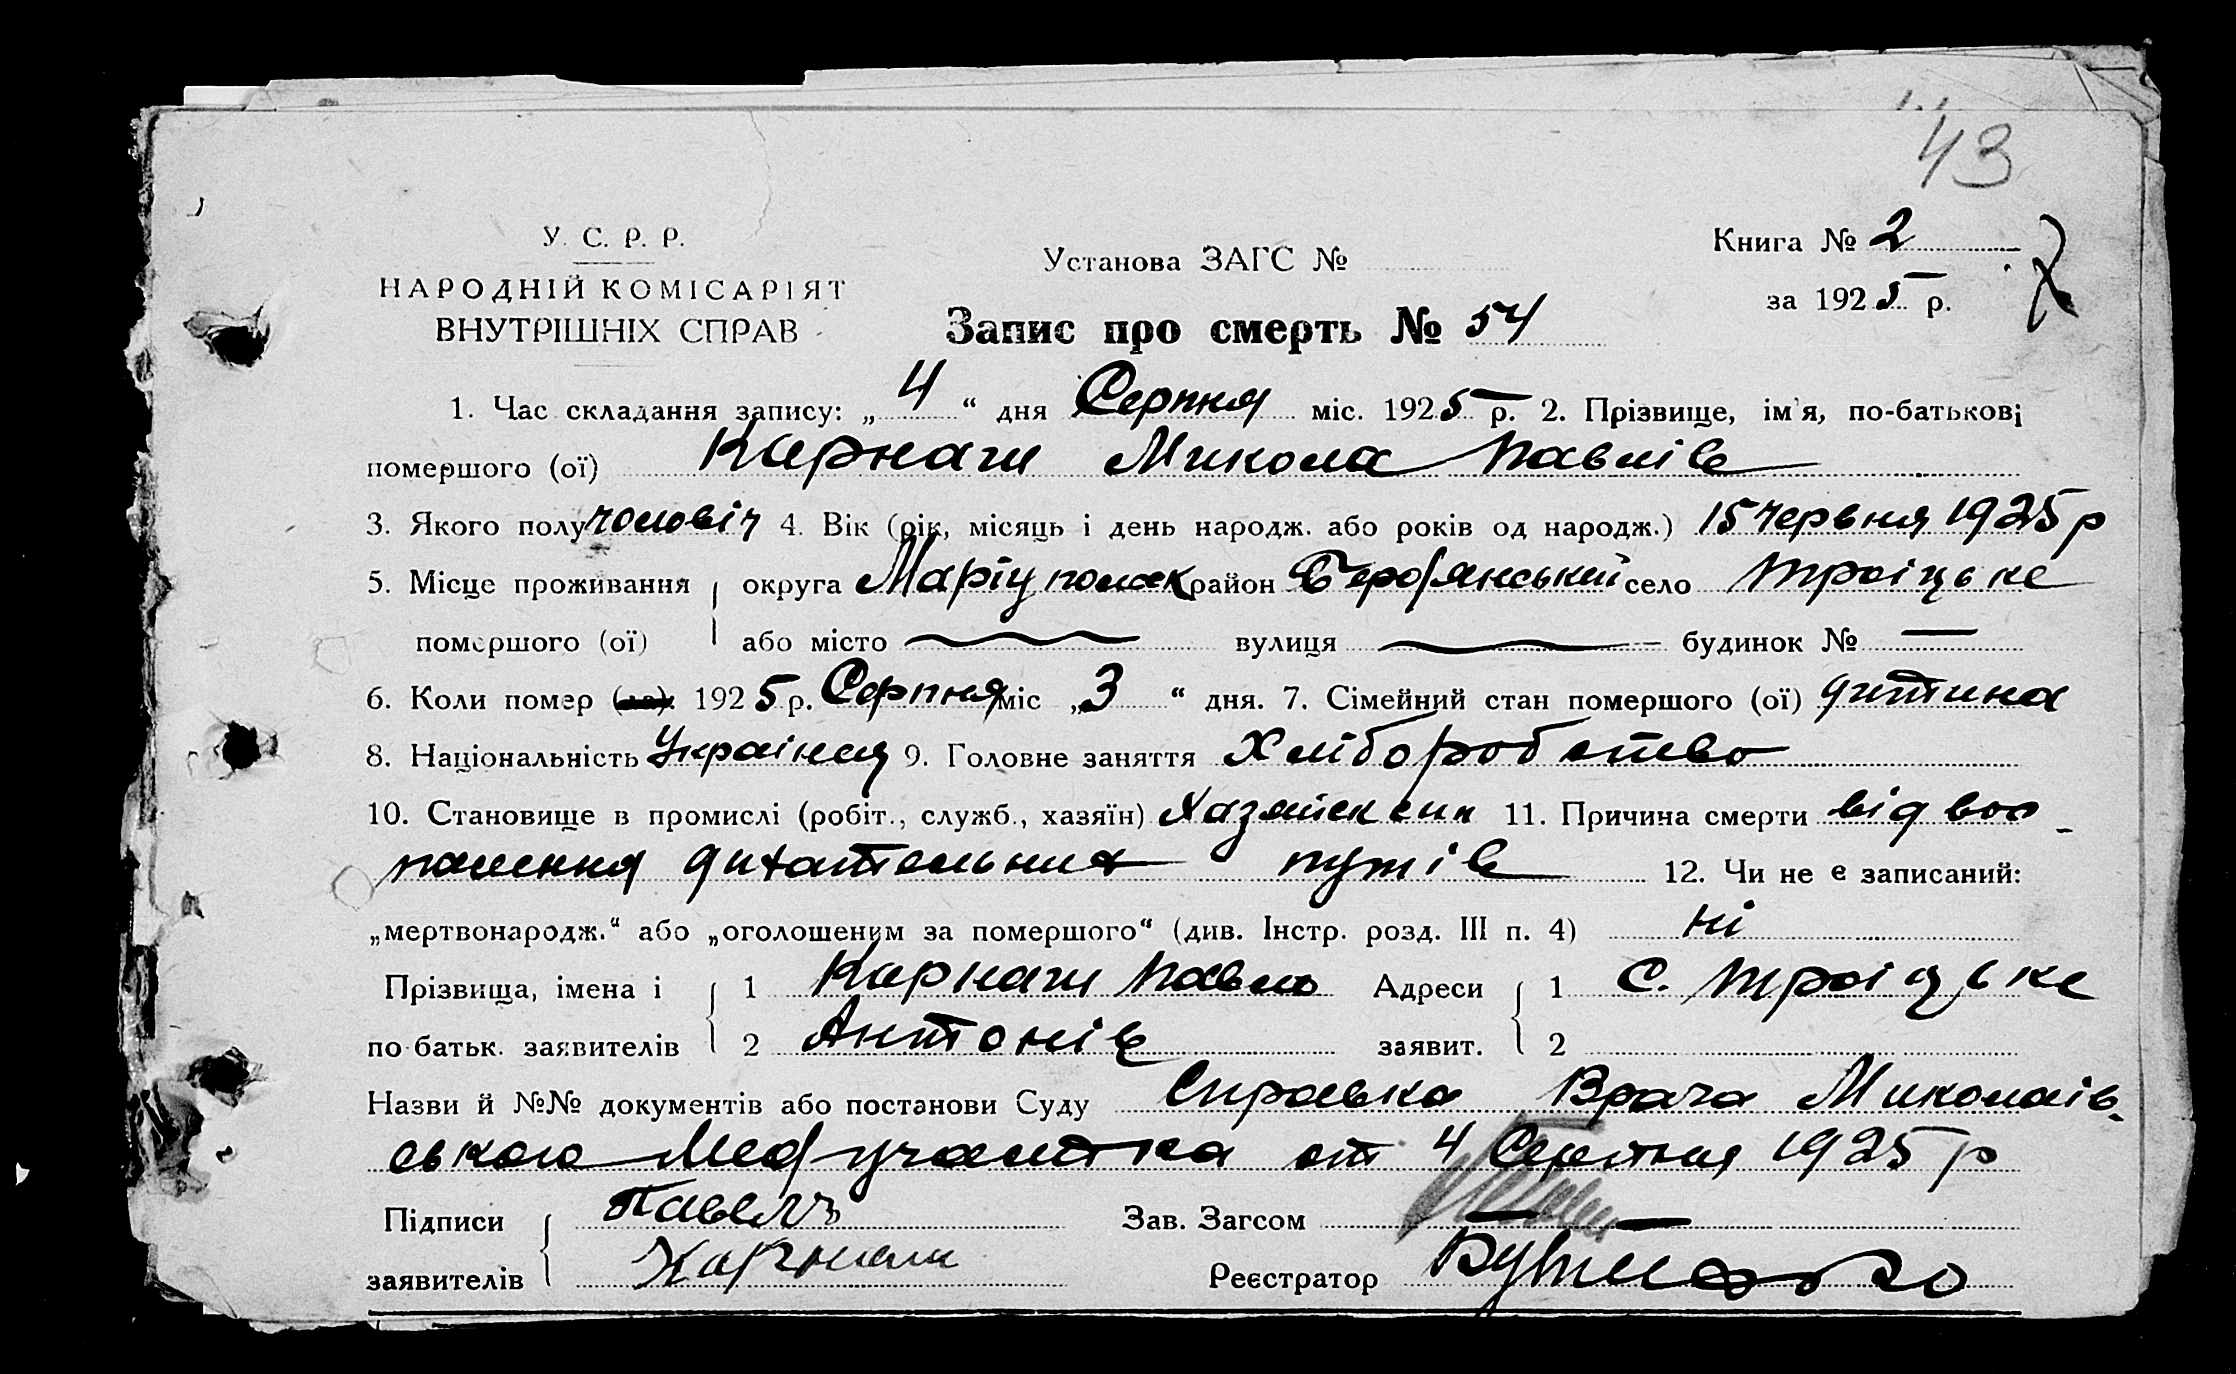 43
У. С. Р. Р.
НАРОДНІЙ КОМІСАРІЯТ
ВНУТРІШНІХ СПРАВ
Установа ЗАГС №
Книга № 2
за 1925 р.
Запис про смерть № 54
1. Час складання запису: „4“ дня Серпня міс. 1925 р. 2. Прізвище, ім'я, по-батькові
помершого (ої) Карнаш Микола Павлів
3. Якого полу чоловіч 4. Вік (рік, місяць і день народж. або років од народж.) 15 червня 1925 р
5. Місце проживання округа Маріупольськ район Бердянський село Троіцьке
помершого (ої) або місто вулиця будинок № —
6. Коли помер (ла). 1925 р. Серпня міс „3“ дня. 7. Сімейний стан помершого (ої) дитина
8. Національність Украінец 9. Головне заняття Хліборобство
10. Становище в промислі (робіт., служб., хазяїн) 11. Причина смерти від вос-
палення дихательних путів 12. Чи не є записаний:
„мертвонародж.“ або „оголошеним за помершого“ (див. Інстр. розд. III п. 4) ні
Прізвища, імена і 1 Карнаш Павло Адреси 1 С. Троіцьке
по батьк. заявителів 2 Антонів заявит. 2
Назви й №№ документів або постанови Суду Справка Врача Миколаів-
ського Медучастка от 4 Серпня 1925 р
Підписи Павелъ Зав. Загсом
заявителів Карнаш Реєстратор